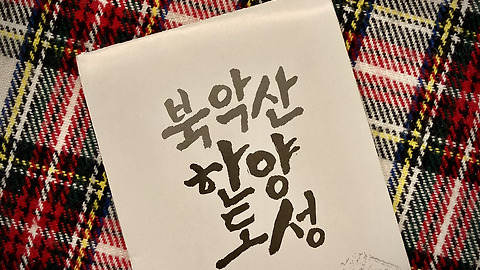 북악산
한양
도성